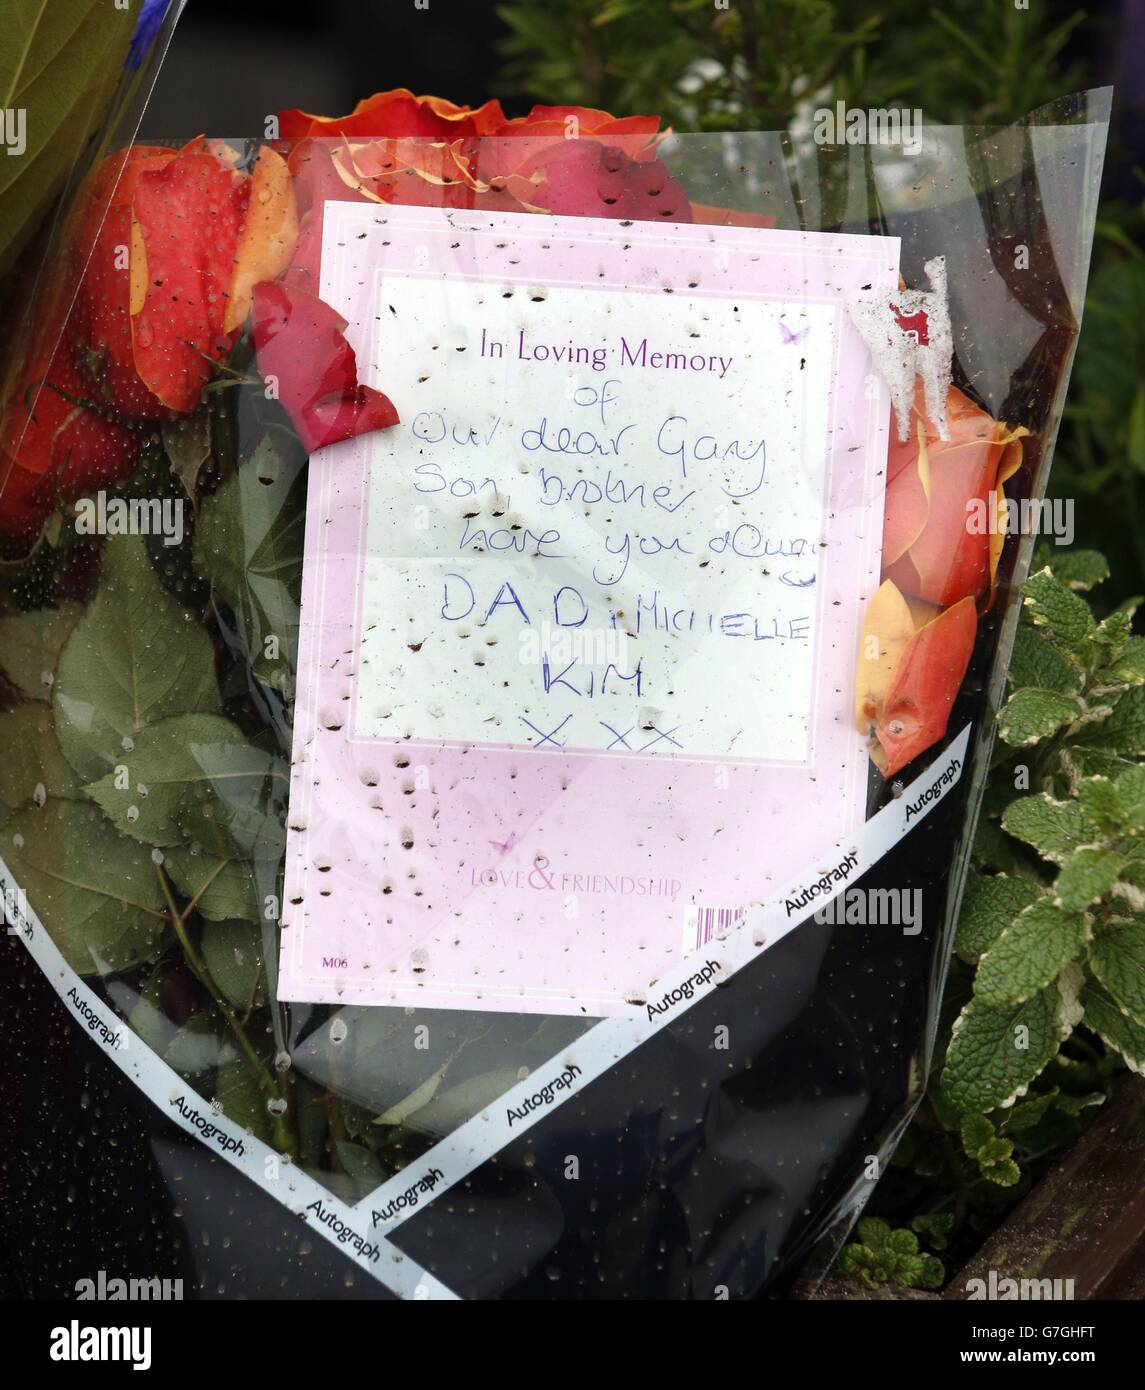 In Loving Memory
of
Our dear Gary
Son, brother
have you always
DAD, MICHELLE
KIM
x xx
LOVE & FRIENDSHIP
M06
Autograph
Autograph
Autograph
Autograph
Autograph
Autograph
Autograph
Autograph
Autograph
alamy
Image ID: G7GHFT
www.alamy.com